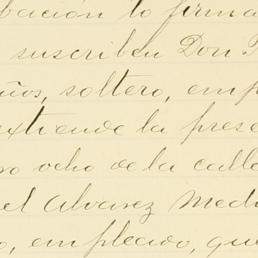 bación lo firma
suscriben Don
ños, soltero, emp
extiende la prese
ro ocho de la calle
el Alvarez Medi
o, empleado, que